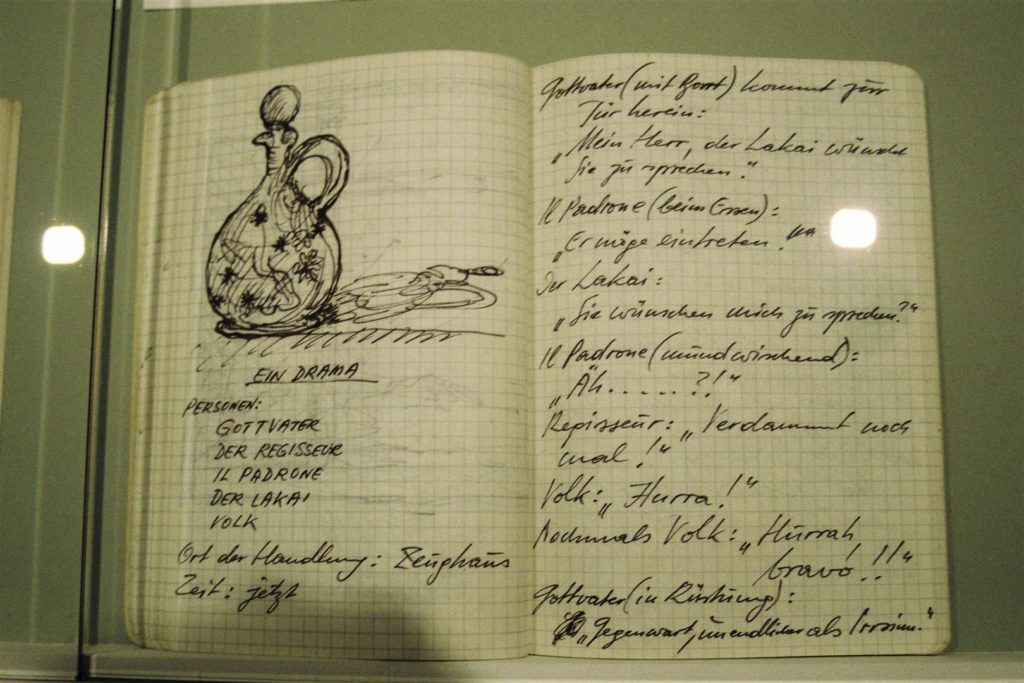 EIN DRAMA
PERSONEN:
GOTTVATER
DER REGISSEUR
IL PADRONE
DER LAKAI
VOLK
Ort der Handlung: Zeughaus
Zeit: jetzt
Gottvater (mit Bart) kommt zur
Tür herein:
„Mein Herr, der Lakai wünscht
Sie zu sprechen."
Il Padrone (beim Essen):
„Er möge eintreten."
Der Lakai:
„Sie wünschen mich zu sprechen?"
Il Padrone (mundwischend):
„Äh.....?!"
Regisseur: „Verdammt noch
mal!"
Volk: „Hurra!"
Nochmals Volk: „Hurrah,
bravo!!"
Gottvater (in Rüstung):
„Gegenwart, unendlicher als